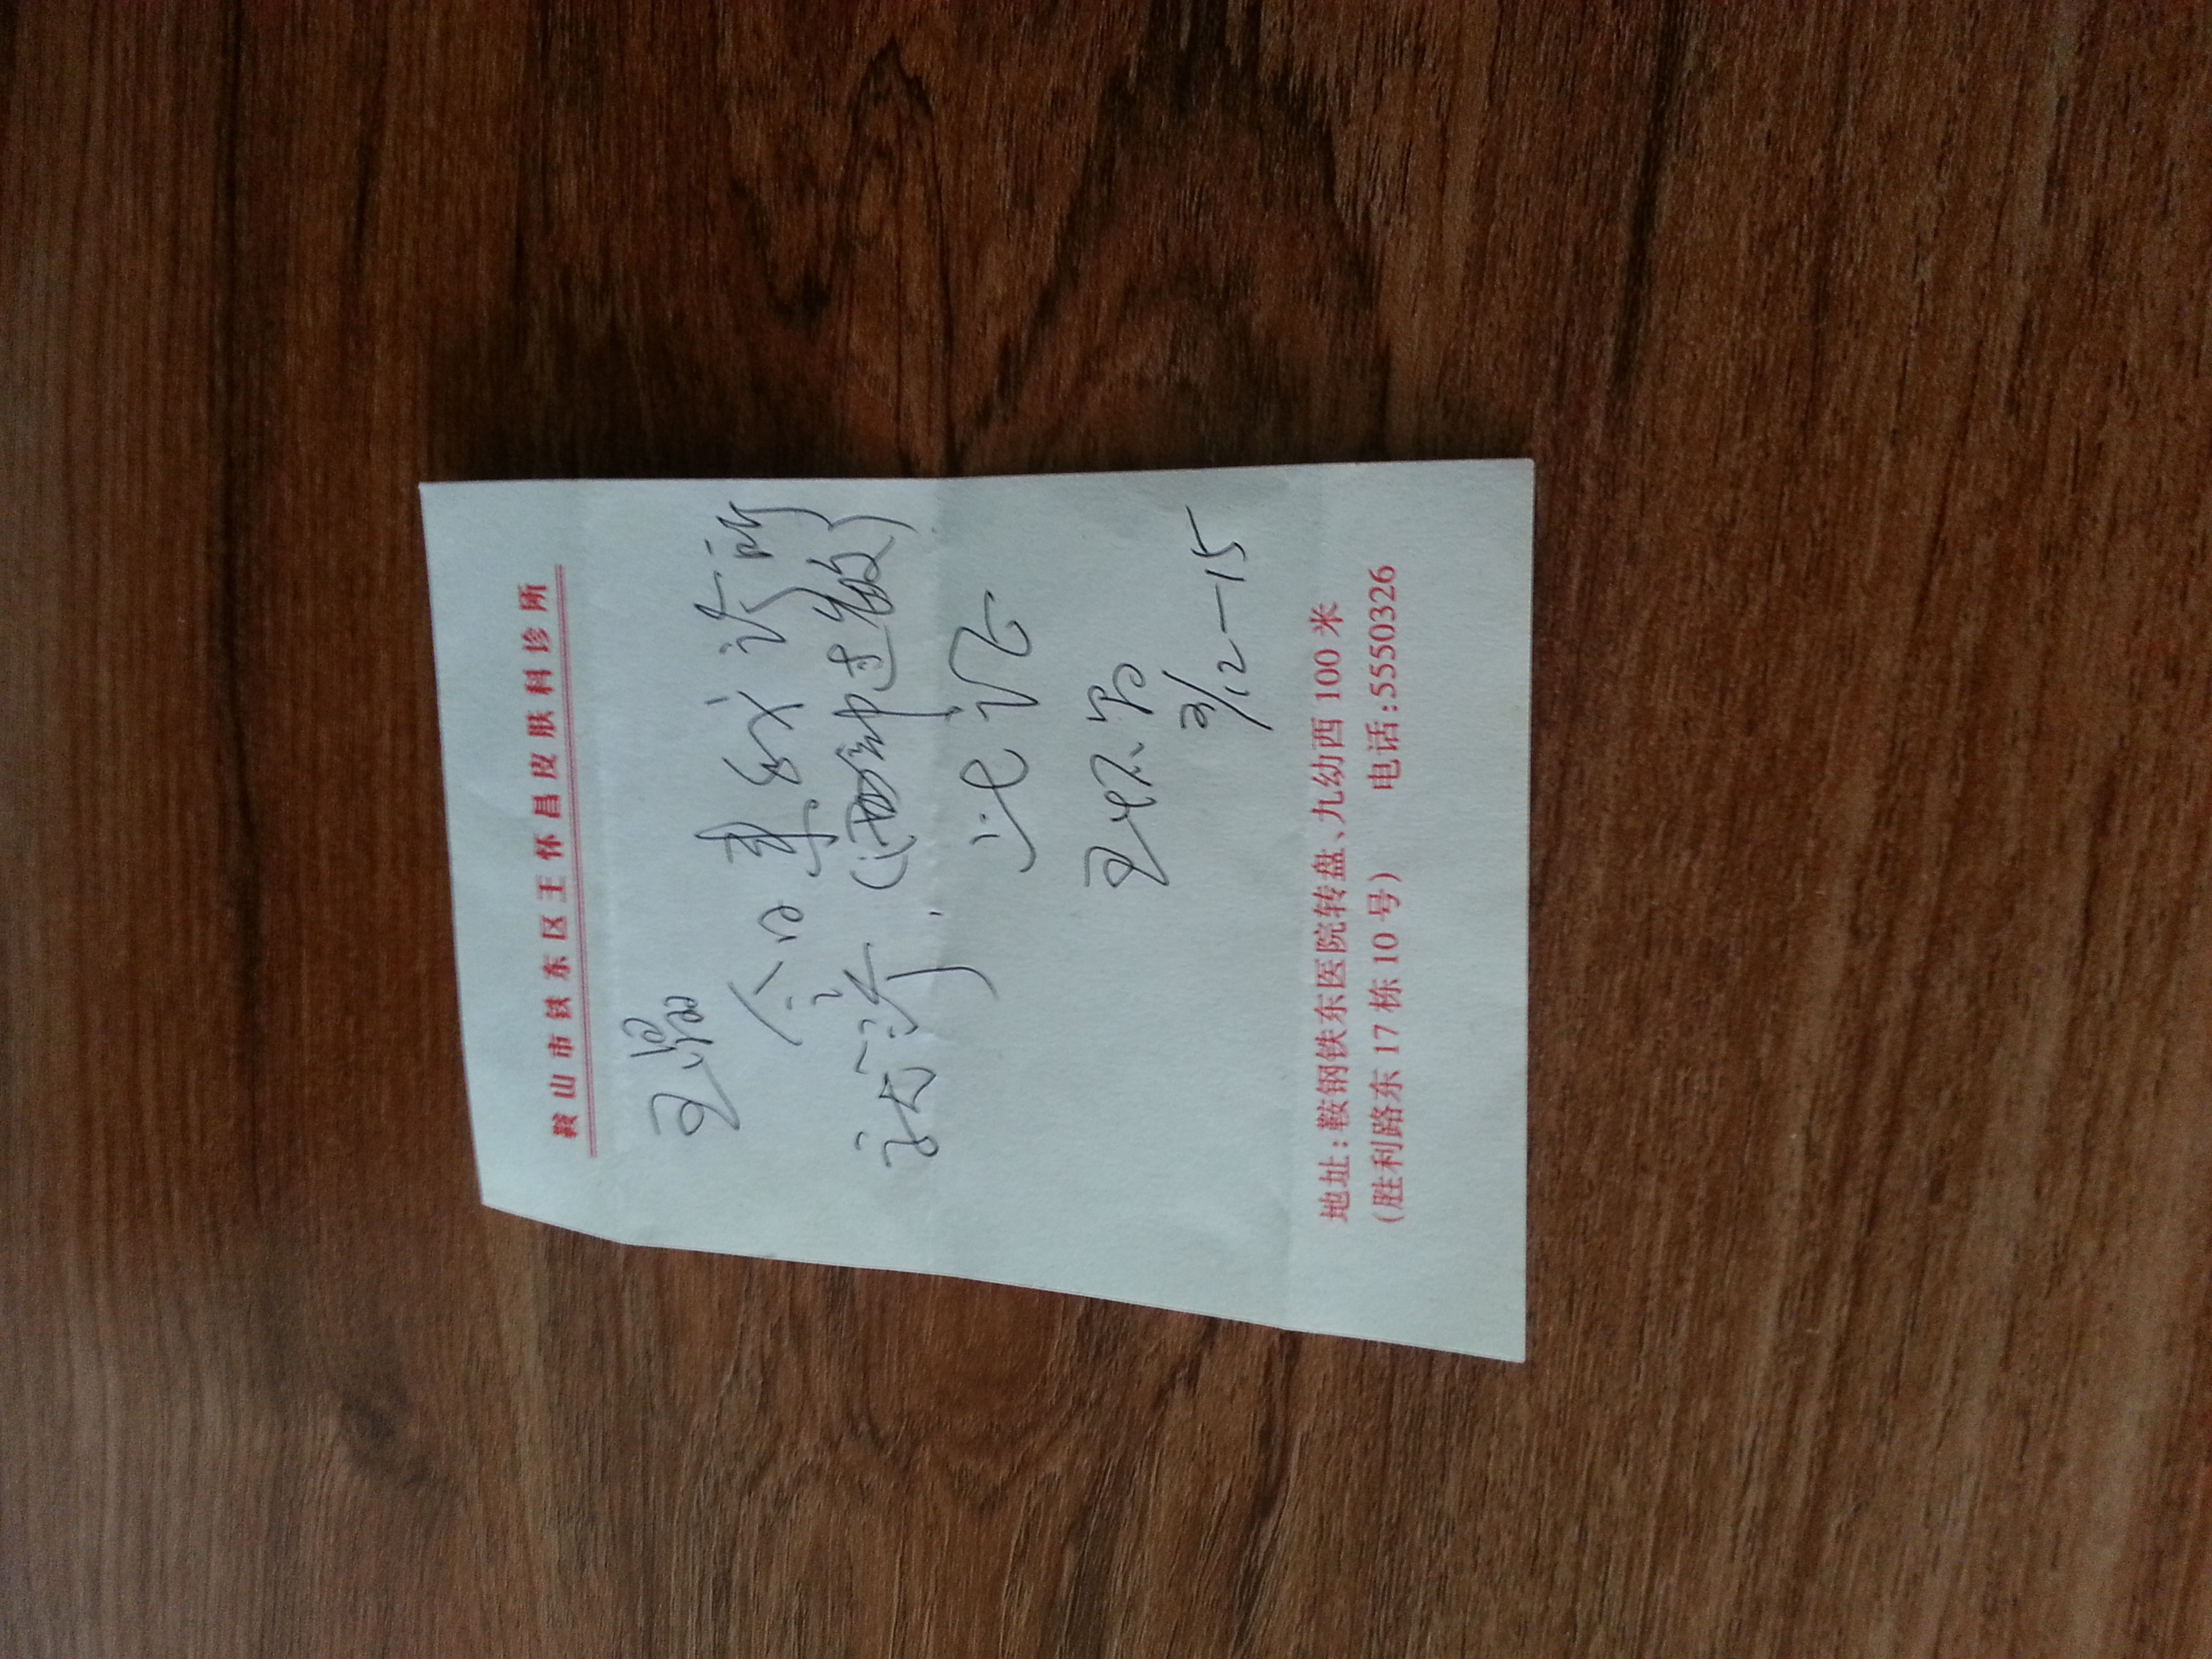 鞍山市铁东区王怀昌皮肤科诊所
王晶
今日来我诊所
就诊.(酒精过敏)
此证
王怀昌
3/12-15
地址:鞍钢铁东医院转盘、九幼西100米
(胜利路东17栋10号) 电话:5550326